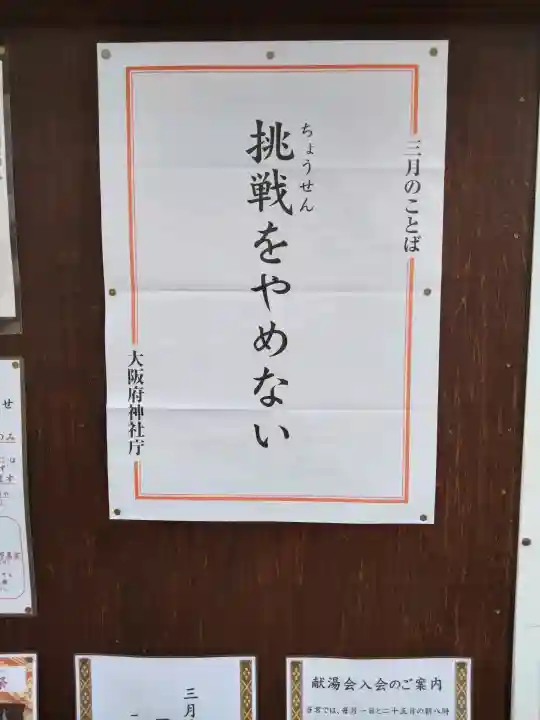 三月のことば
ちょうせん
挑戦をやめない
大阪府神社庁
せ
三月
献湯会入会のご案内
当宮では、毎月一日と二十五日の朝八時